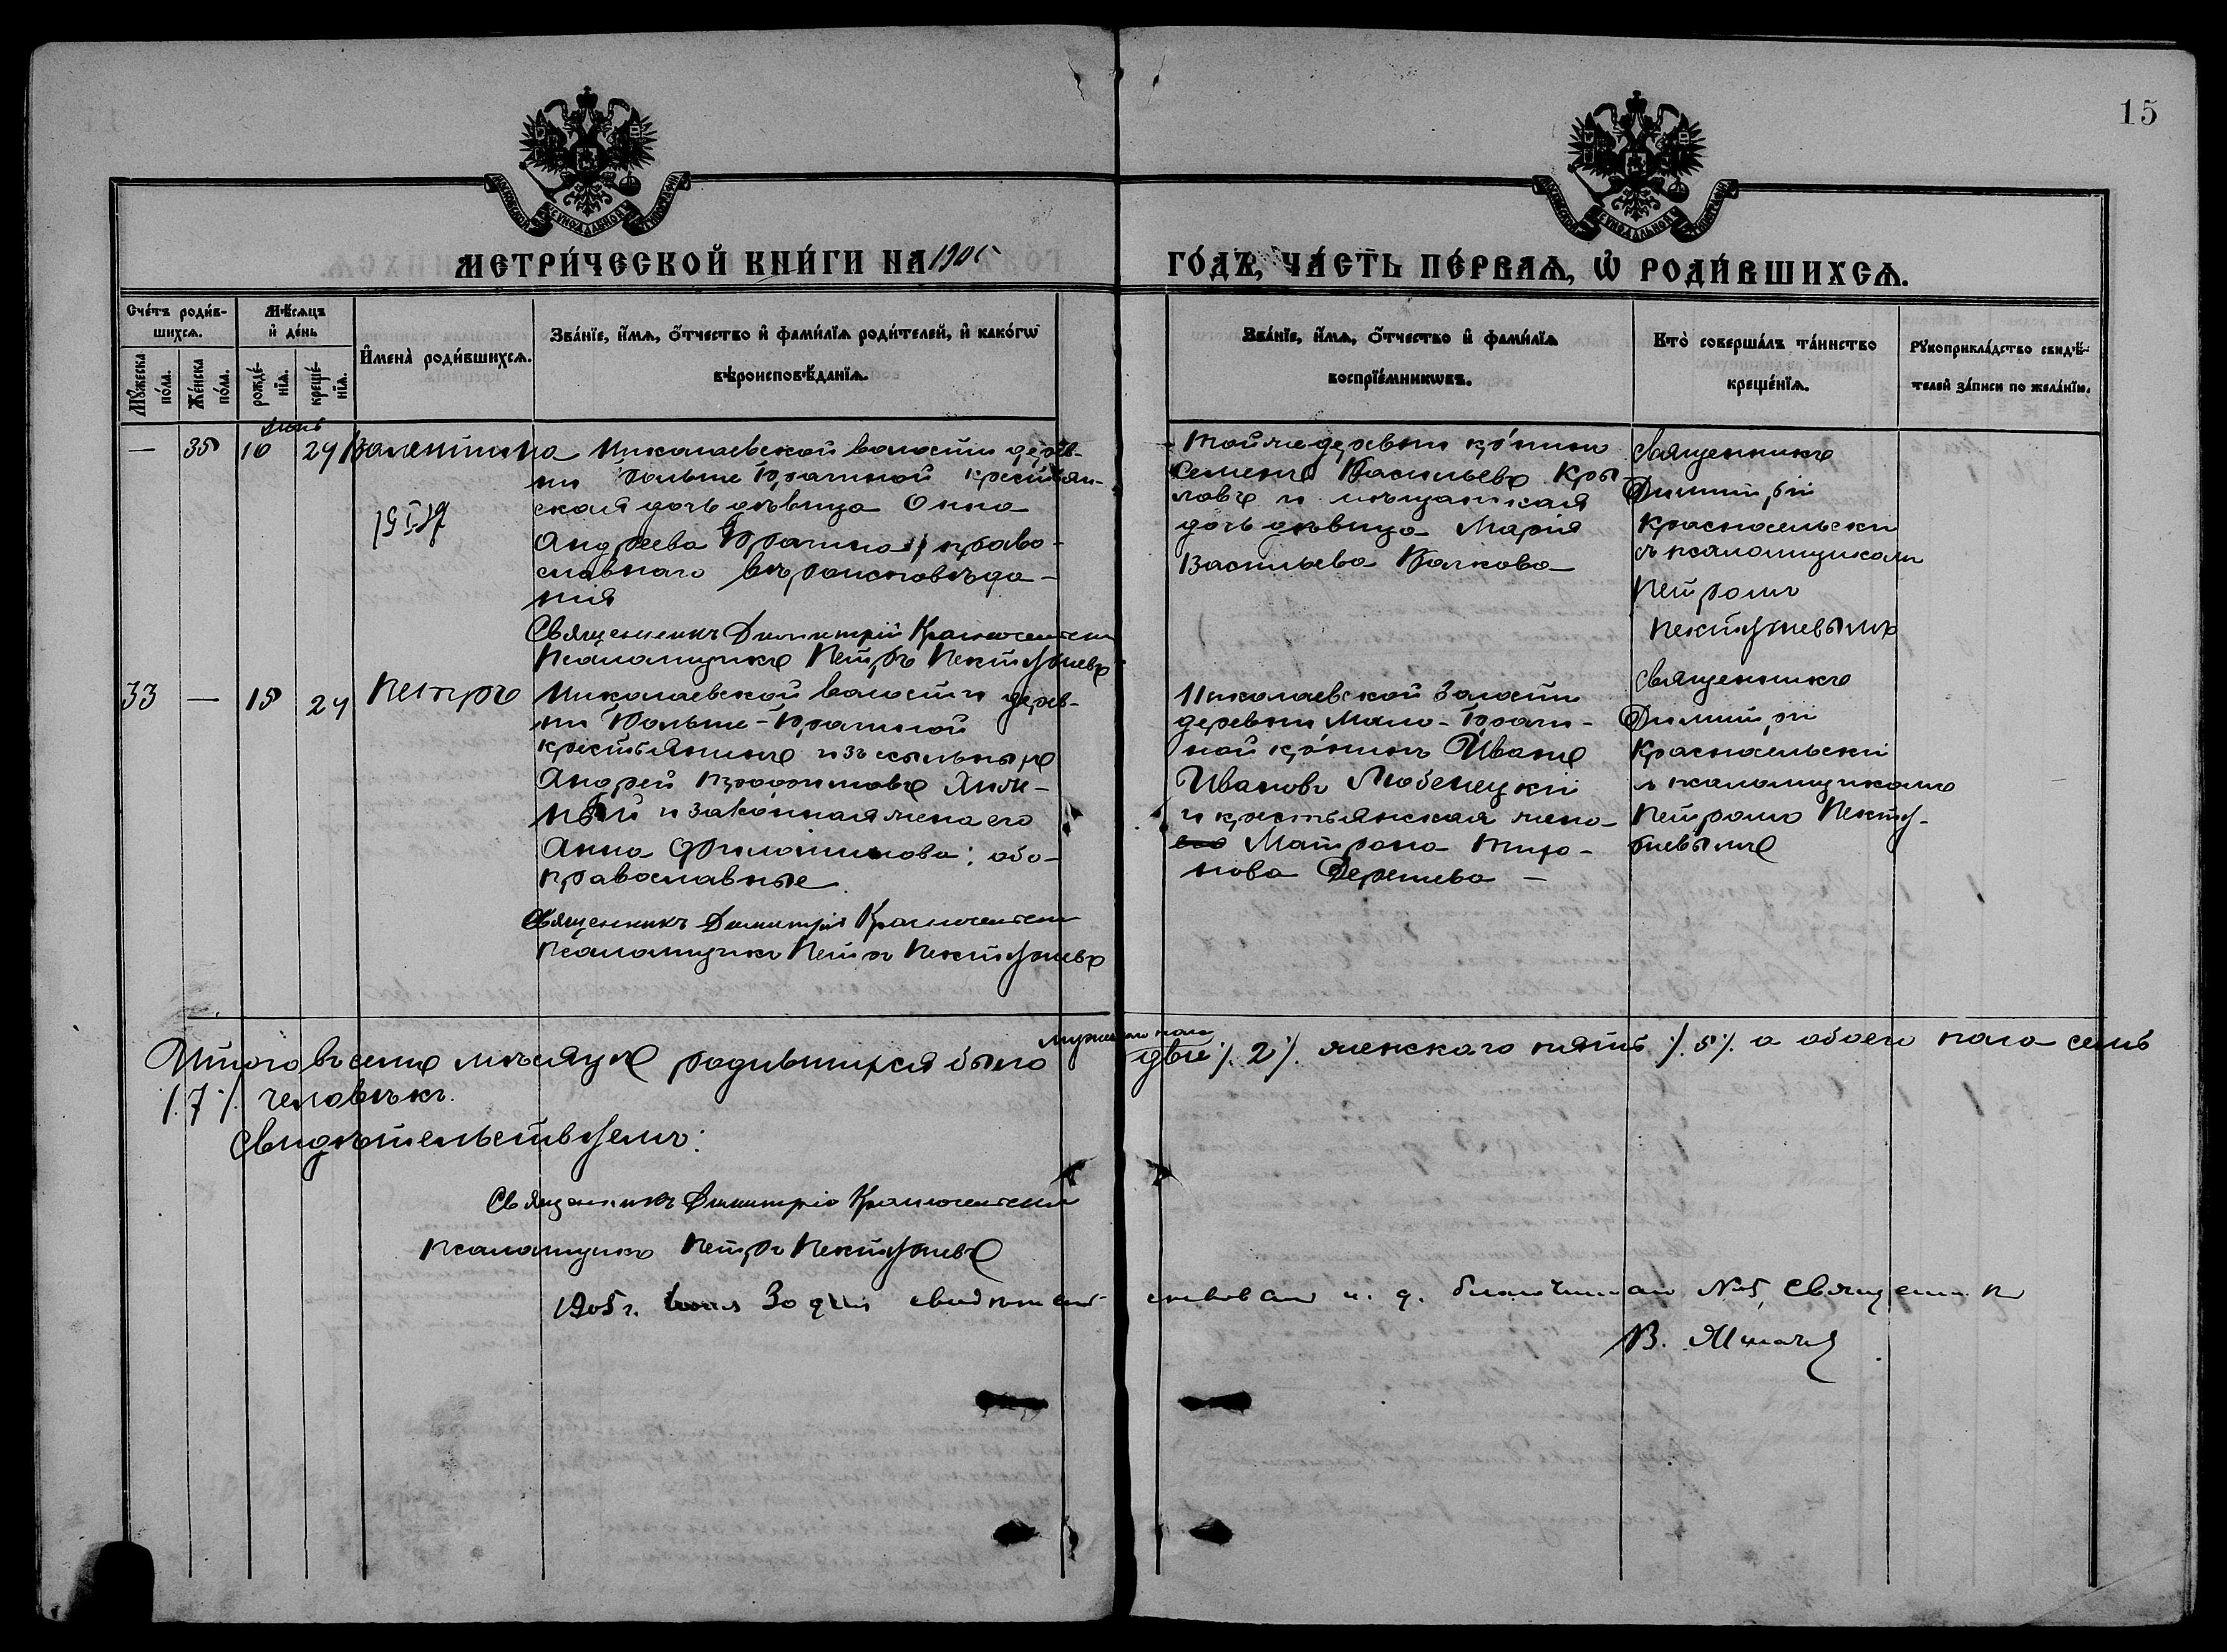 15
МОСКОВСКОЙ СѴНОДАЛЬНОЙ ТИПОГРАФІИ
МОСКОВСКОЙ СѴНОДАЛЬНОЙ ТИПОГРАФІИ
МЕТРИ́ЧЕСКОЙ КНИ́ГИ НА 1905 ГО́ДЪ, ЧА́СТЬ ПЕ́РВАѦ, Ѡ҆ РОДИ́ВШИХСѦ.
Сче́тъ роди́в-
шихсѧ.
Мꙋ́жеска по́ла.
Же́нска по́ла.
Мѣ́сѧцъ и҆ де́нь
рожде́-нїѧ.
креще́-нїѧ.
И҆мена̀ роди́вшихсѧ.
Зва́нїе, и҆́мѧ, ѻ҆́тчество и҆ фами́лїѧ роди́телей, и҆ како́гѡ
вѣроисповѣ́данїѧ.
Зва́нїе, и҆́мѧ, ѻ҆́тчество и҆ фами́лїѧ
воспрїе́мникѡвъ.
Кто̀ соверша́лъ та́инство
креще́нїѧ.
Рꙋкоприкла́дство свидѣ́-
телей за́писи по жела́нїю.
— 35 16 24 Валентина
Николаевской волости дерев-
ни Больше Брагиной крестьян-
ская дочь девица Анна
Андреева Брагина; право-
славнаго вѣроисповѣда-
нія
Священникъ Димитрій Красносельскій
Псаломщикъ Петръ
Той же деревни кр-нинъ
Семенъ Васильевъ Кры-
ловъ и мѣщанская
дочь дѣвица Марія
Васильева Волкова
Священникъ
Димитрій
Красносельскій
съ псаломщикомъ
Петромъ
33 — 15 24 Петръ
Николаевской волости дерев-
ни Больше-Брагиной
крестьянинъ изъ ссыльныхъ
Андрей Трофимовъ
и законная жена его
Анна Филиппова; оба
православные.
Священникъ Димитрій Красносельскій
Псаломщикъ Петръ
Николаевской волости
деревни Мало-Браги-
ной кр-нинъ Иванъ
Ивановъ Любенецкій
и крестьянская жена
Матрона Тихо-
нова
Священникъ
Димитрій
Красносельскій
съ псаломщикомъ
Петромъ
Итого въ семъ мѣсяцѣ родившихся было мужескаго пола двое /.2/. женскаго пять /.5/. а обоего пола семь
/.7/. человѣкъ.
Свидѣтельствуемъ:
Священникъ Димитрій Красносельскій
Псаломщикъ Петръ
1905 г. 30 дня свидѣтельствовалъ и. д. благочиннаго №5, священникъ
В.